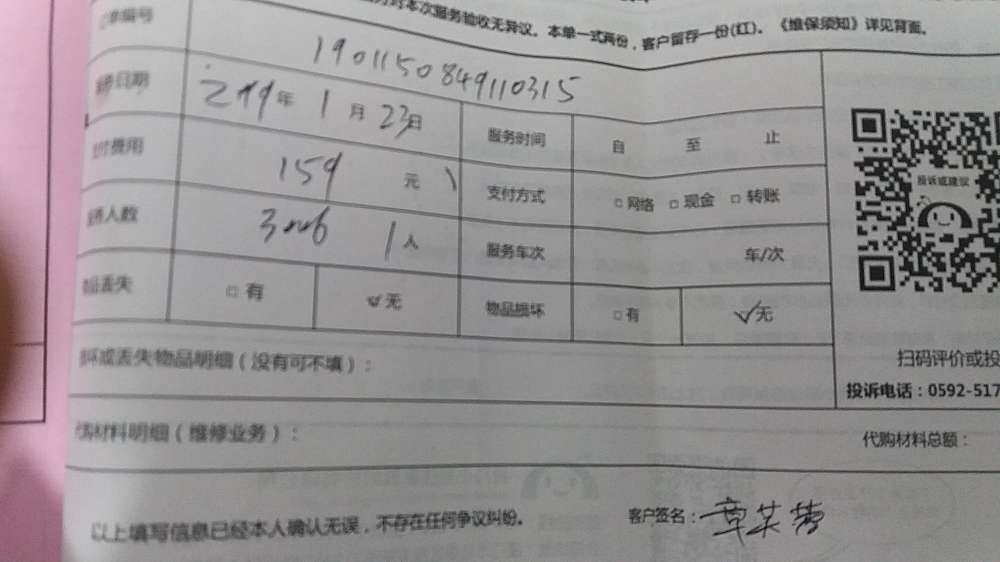 对本次服务验收无异议。本单一式两份，客户留存一份(红)。《维保须知》详见背面。
编号 1901150849110315
日期 2019年1月23日 服务时间 自 至 止
付费用 159 元 支付方式 □网络 □现金 □转账
人数 1人 服务车次 车/次
品丢失 □有 ☑无 物品损坏 □有 ☑无
坏或丢失物品明细（没有可不填）：
投诉或建议
扫码评价或投
投诉电话：0592-517
代购材料明细（维修业务）： 代购材料总额：
以上填写信息已经本人确认无误，不存在任何争议纠纷。 客户签名：